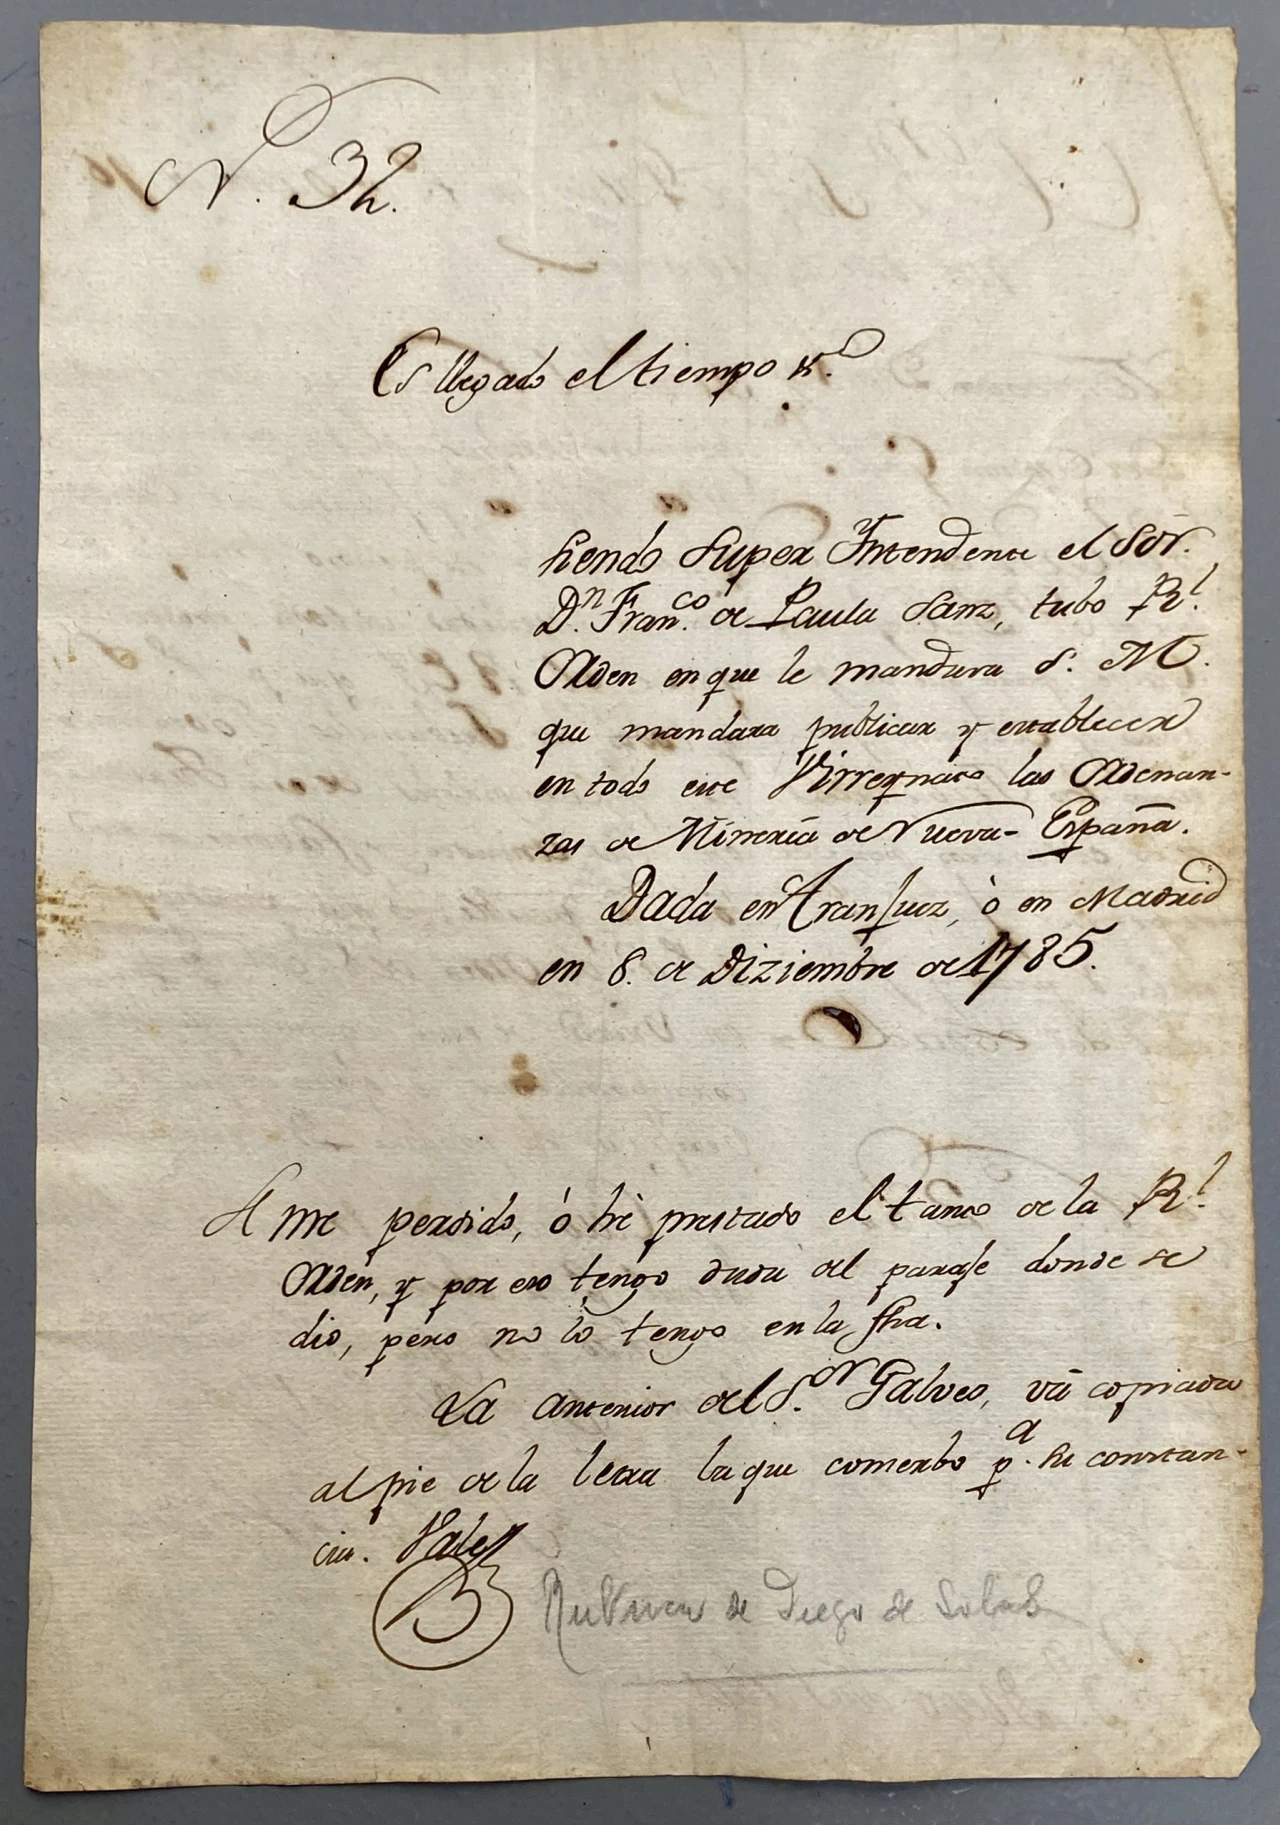 N. 32.
Es llegado el tiempo &.a
Siendo Super Yntendente el Sōr.
D.n Fran.co de Paula Sanz, tubo R.l
Orden en que le mandava S. M.
que mandara publicar y establecer
en todo este Virreynato las Ordenan-
zas de Mineria de Nueva España.
Dada en Aranjuez, ò en Madrid
en 8. de Diziembre de 1785.
Se me perdido, ó hè prestado el tanto de la R.l
Orden, y por eso tengo duda del paraje donde se
dio, pero no lo tengo en la fha.
La anterior del S.or Galves, vá copiada
al pie de la letra la que comerbo p.a su constan-
cia. Vale
Rubrica de Diego de